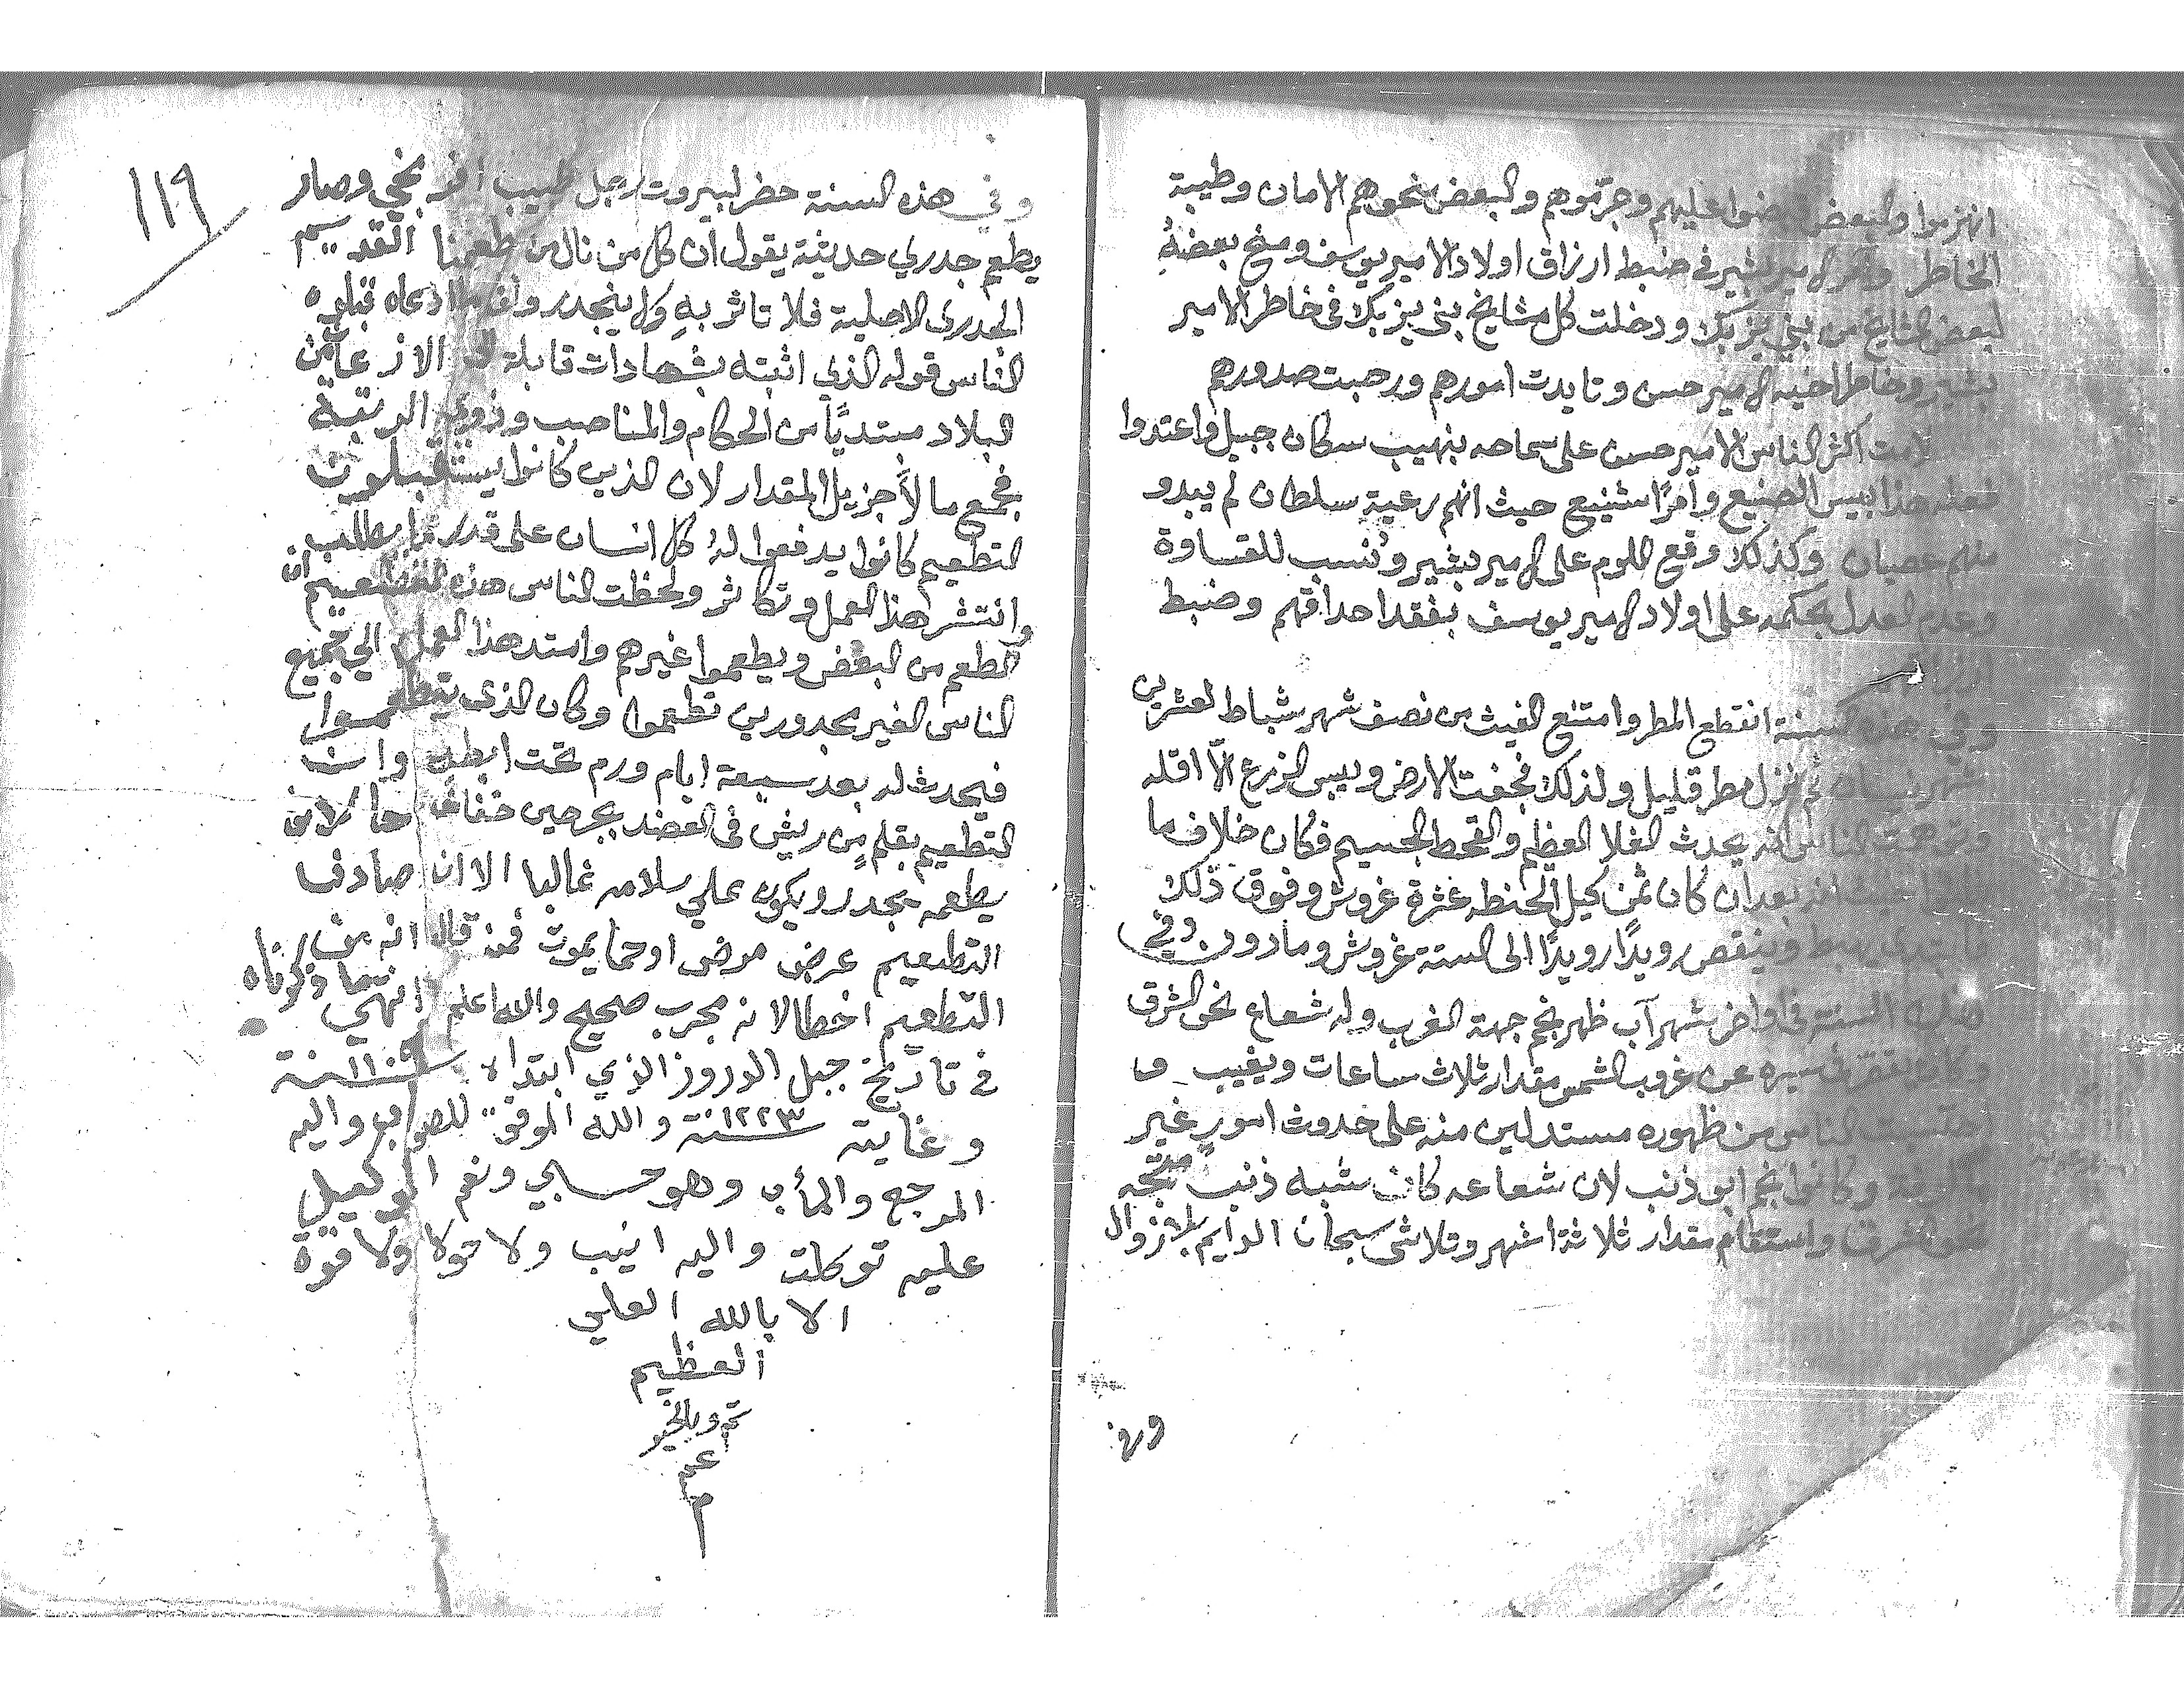 انهزموا والبعض عليهم وجرّموهم والبعض نحوهم الامان وطيبة
الخاطر وامر الامير بشير في ضبط ارزاق اولاد الامير يوسف ومنح بعضهُ
لبعض المشايخ من بني يزبك ودخلت كل مشايخ بني يزبك في خاطر الامير
بشير وخاطر اخيه الامير حسن وتايدت امورهم ورحبت صدورهم
اكثر الناس الامير حسن على سماحه بنهيب سكان جبيل واعتدوا
هذا بيس الصنيع وامرًا شنيع حيث انهم رعية سلطان لم يبدو
منهم عصيان وكذلك وقع اللوم على الامير بشير ونُسب للقساوة
وعدم العدل بحكمه على اولاد الامير يوسف بفقد احداقهم وضبط
وفي السنة انقطع المطر وامتنع الغيث من نصف شهر شباط لعشرين
نزل مطر قليل ولذلك فجفت الارض ويبس الزرع الّا اقله
انه يحدث الغلا العظيم والقحط الجسيم فكان خلاف ما
بعد ان كان ثمن كيل الحنطه عشرة غروش وفوق ذلك
وينقص رويدًا رويدًا الى الستة غروش وما دون وفي
السنة في اواخر شهر آب ظهر نجم جهة الغرب وله شعاع نحو الشرق
سيره عن غروب الشمس مقدار ثلاث ساعات ويغيب
الناس من ظهوره مستدلين منه على حدوث امورٍ غير
وكانوا نجم ابو ذنب لان شعاعه كان شبه ذنب متجه
واستقام مقدار ثلاثة اشهر وتلاشى سبحان الدايم بلا زوال
وفي
١١٩
وفي هذه السنة حضر لبيروت رجل طبيب افرنجي وصار
يطعم جدري حديثة يقول ان كل من نال من طعمنا القديم
الجدري الاصلية فلا تاثر بهِ ولا ينجدر ادعاه قبلوه
الناس قوله الذي اثبته بشهادات قابلة
البلاد مبتديًا من الحكام والمناصب وذوي الرتبة
فجمع مالًا جزيل المقدار لان الذين كانوا يستقبلون
التطعيم كانوا يدفعوا لهُ كل انسان على قدر ما يطلب
وانتشر هذا العمل وتكاثر ولحظت الناس هذه التطعيم ان
الطعم من البعض ويطعموا غيرهم وامتد هذا العمل الي جميع
الناس الغير مجدورين تطعموا وكان الذي يتطعموا
فيحدث له بعد سبعة ايام ورم تحت ابطه وان
التطعيم بقلمٍ من ريش في العضد بجرحين
يطعمه يجدر ويكون علي سلامه غالبا الا ان صادف
التطعيم عرض مرض او حما يموت فمن قال انه من
التطعيم اخطا لانه مجرب صحيح والله اعلم انتهي ما ذكرناه
في تاريخ جبل الدروز الذي ابتداه سنة ١١٠٩
وغايته سنة ١٢٢٣ والله الموفق للصواب واليه
المرجع والمأب وهو حسبي ونعم الوكيل
عليه توكلت واليه انيب ولا حولا ولا قوة
الا بالله العلي
العظيم
تم وبالخير
عم
م